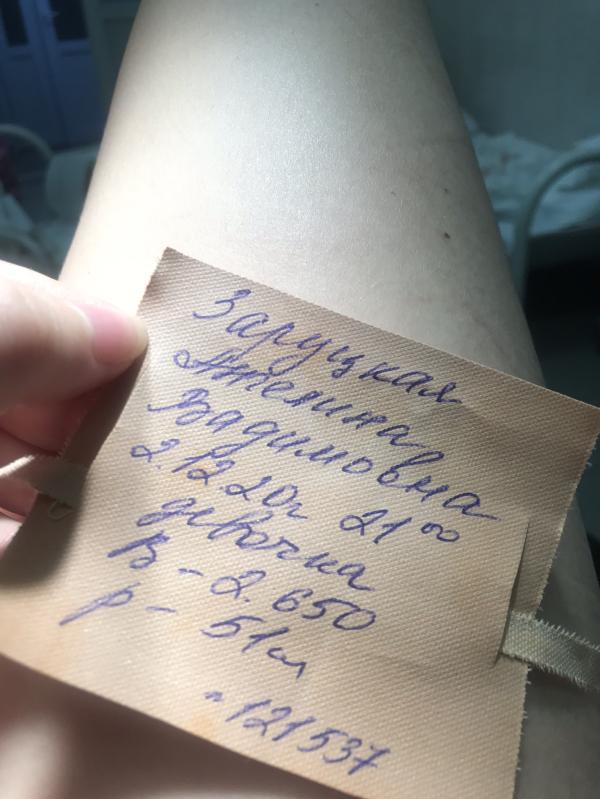 Заруцкая
Ангелина
Вадимовна
2.12 20г 21 00
девочка
В - 2.650
р - 51см
121537